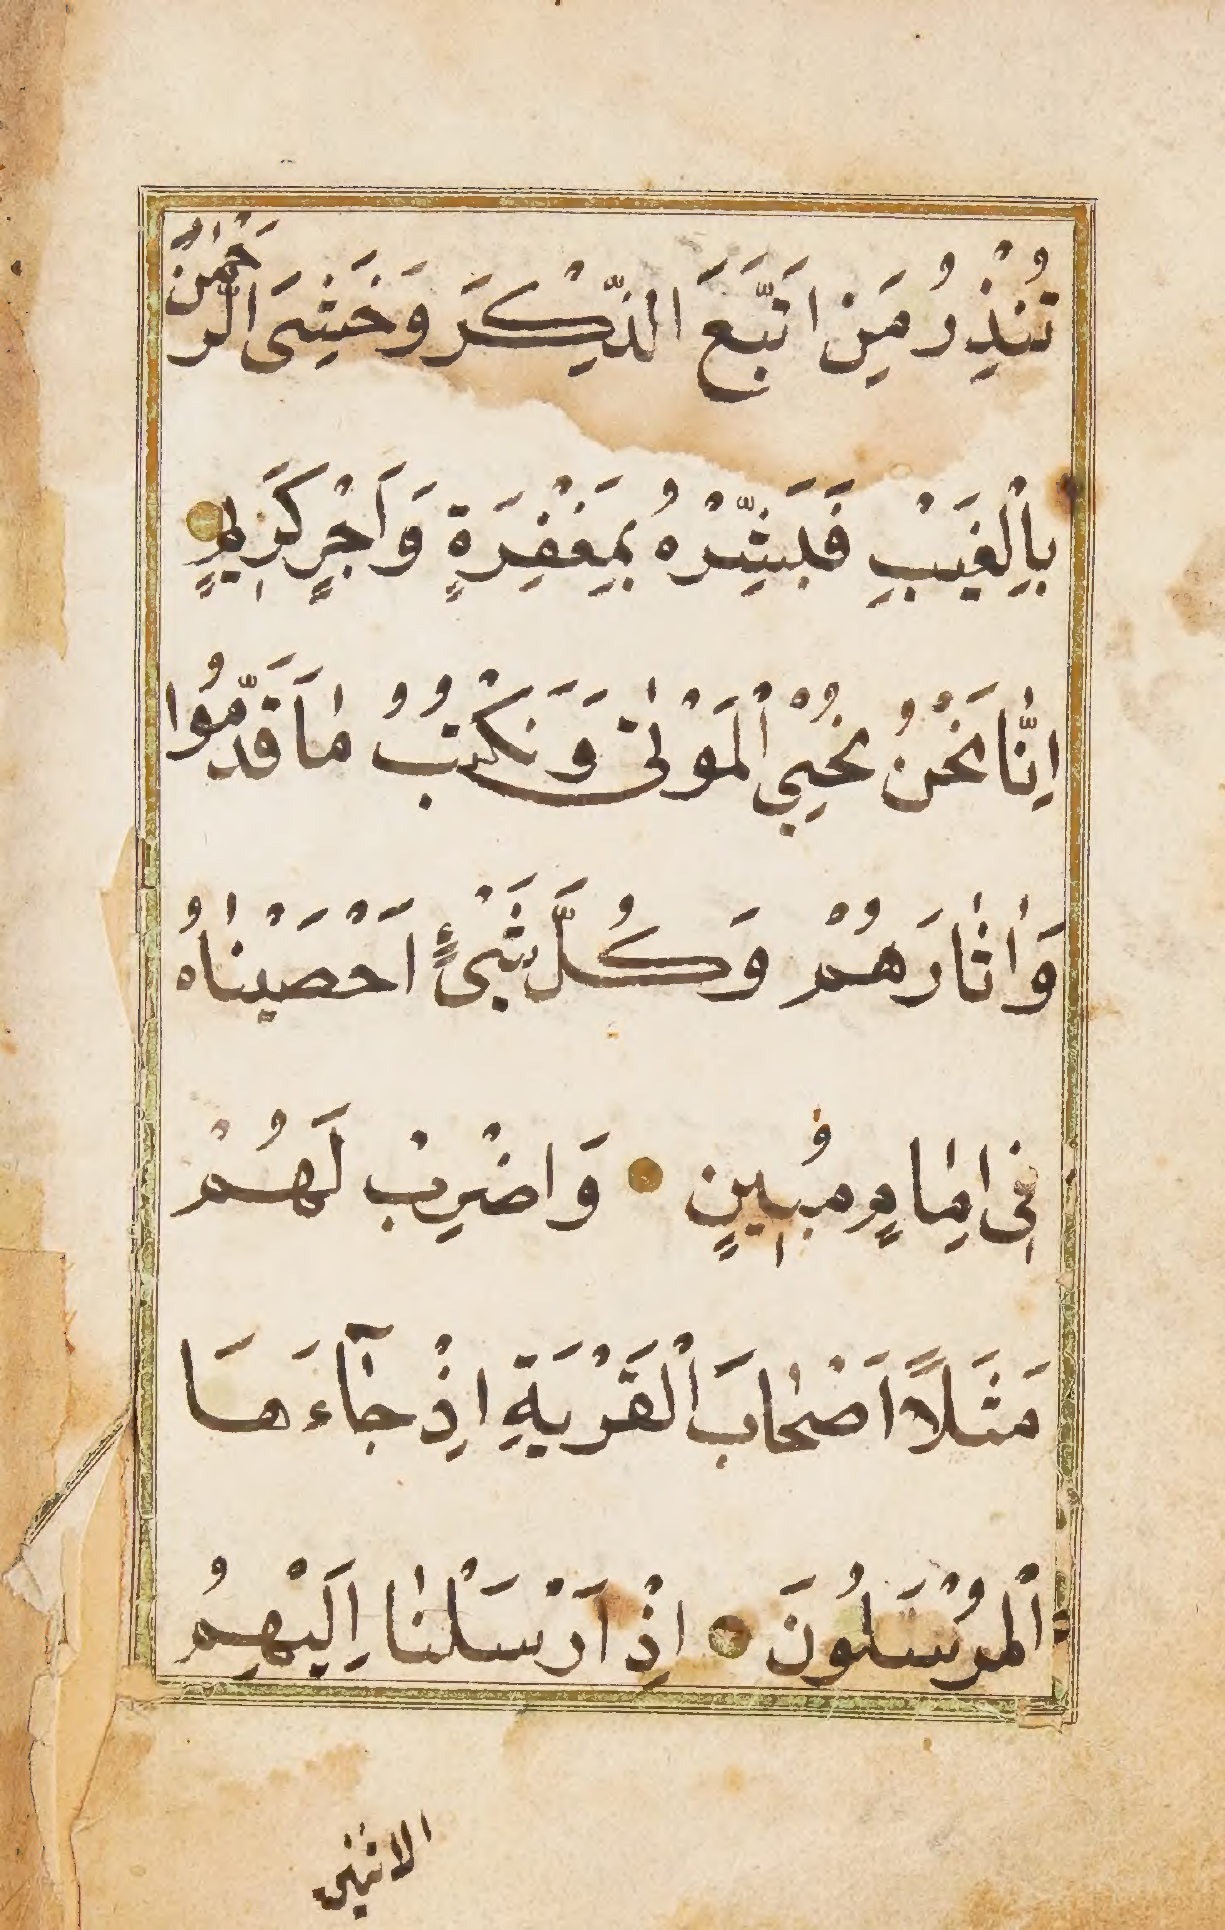 تُنْذِرُ مَنِ اتَّبَعَ الذِّكْرَ وَخَشِىَ الرَّحْمٰنَ
بِالْغَيْبِ فَبَشِّرْهُ بِمَغْفِرَةٍ وَاَجْرٍ كَرِيمٍ
اِنَّا نَحْنُ نُحْيِي الْمَوْتٰى وَنَكْتُبُ مَا قَدَّمُوا
وَاٰثَارَهُمْ وَكُلَّ شَىْءٍ اَحْصَيْنَاهُ
فِى اِمَامٍ مُبِينٍ وَاضْرِبْ لَهُمْ
مَثَلًا اَصْحَابَ الْقَرْيَةِ اِذْ جَآءَهَا
الْمُرْسَلُونَ اِذْ اَرْسَلْنَا اِلَيْهِمُ
الاثنين